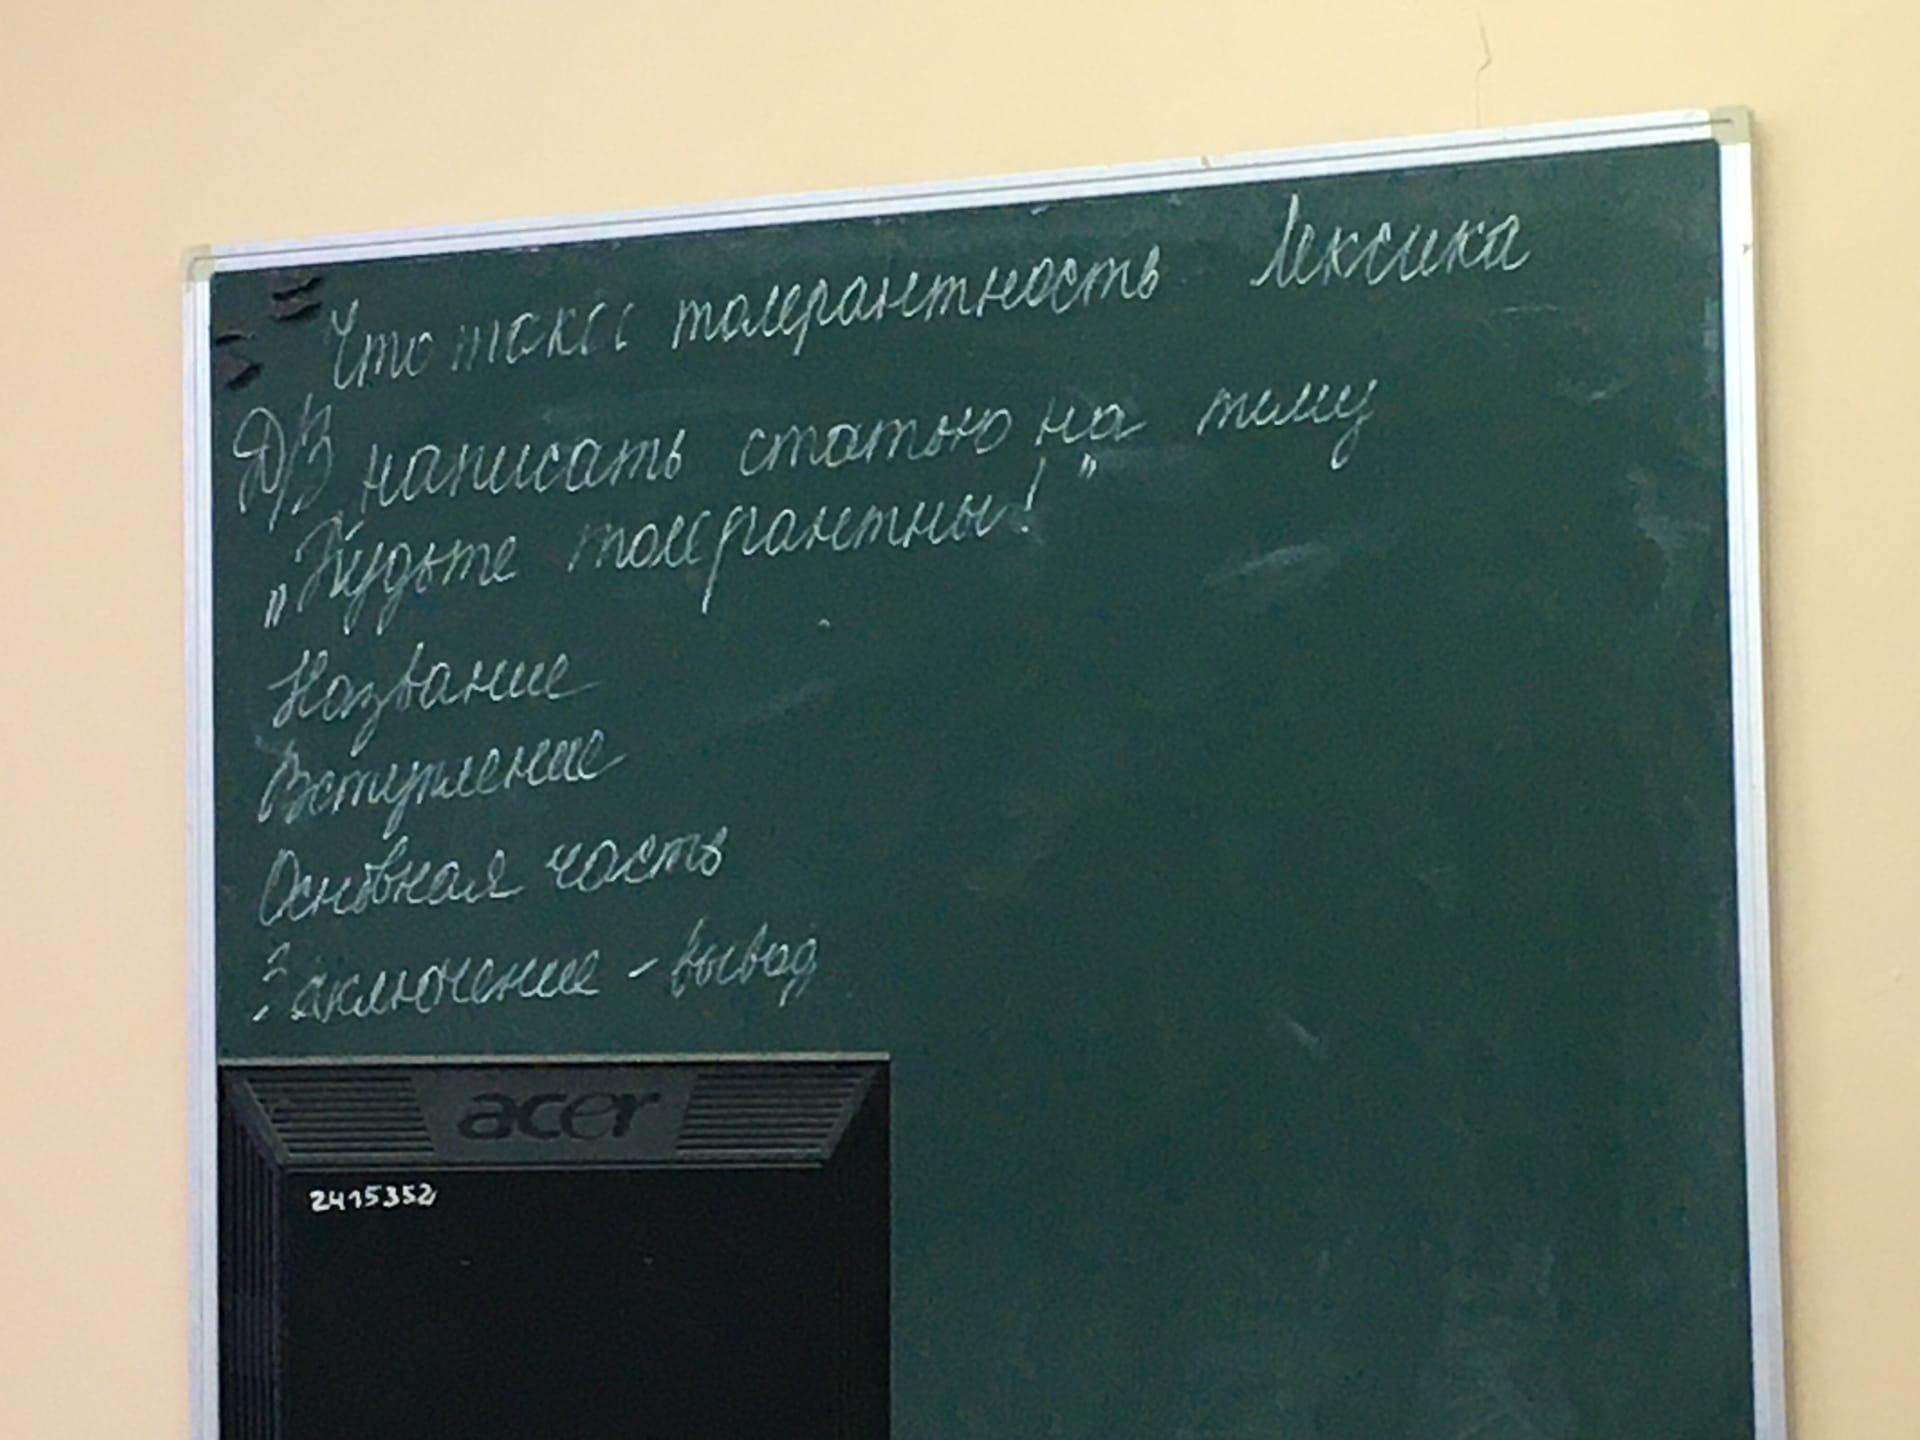 Что такое толерантность Лексика
Д/З написать статью на тему
„Будьте толерантны!"
Название
Вступление
Основная часть
Заключение - вывод
acer
2415352